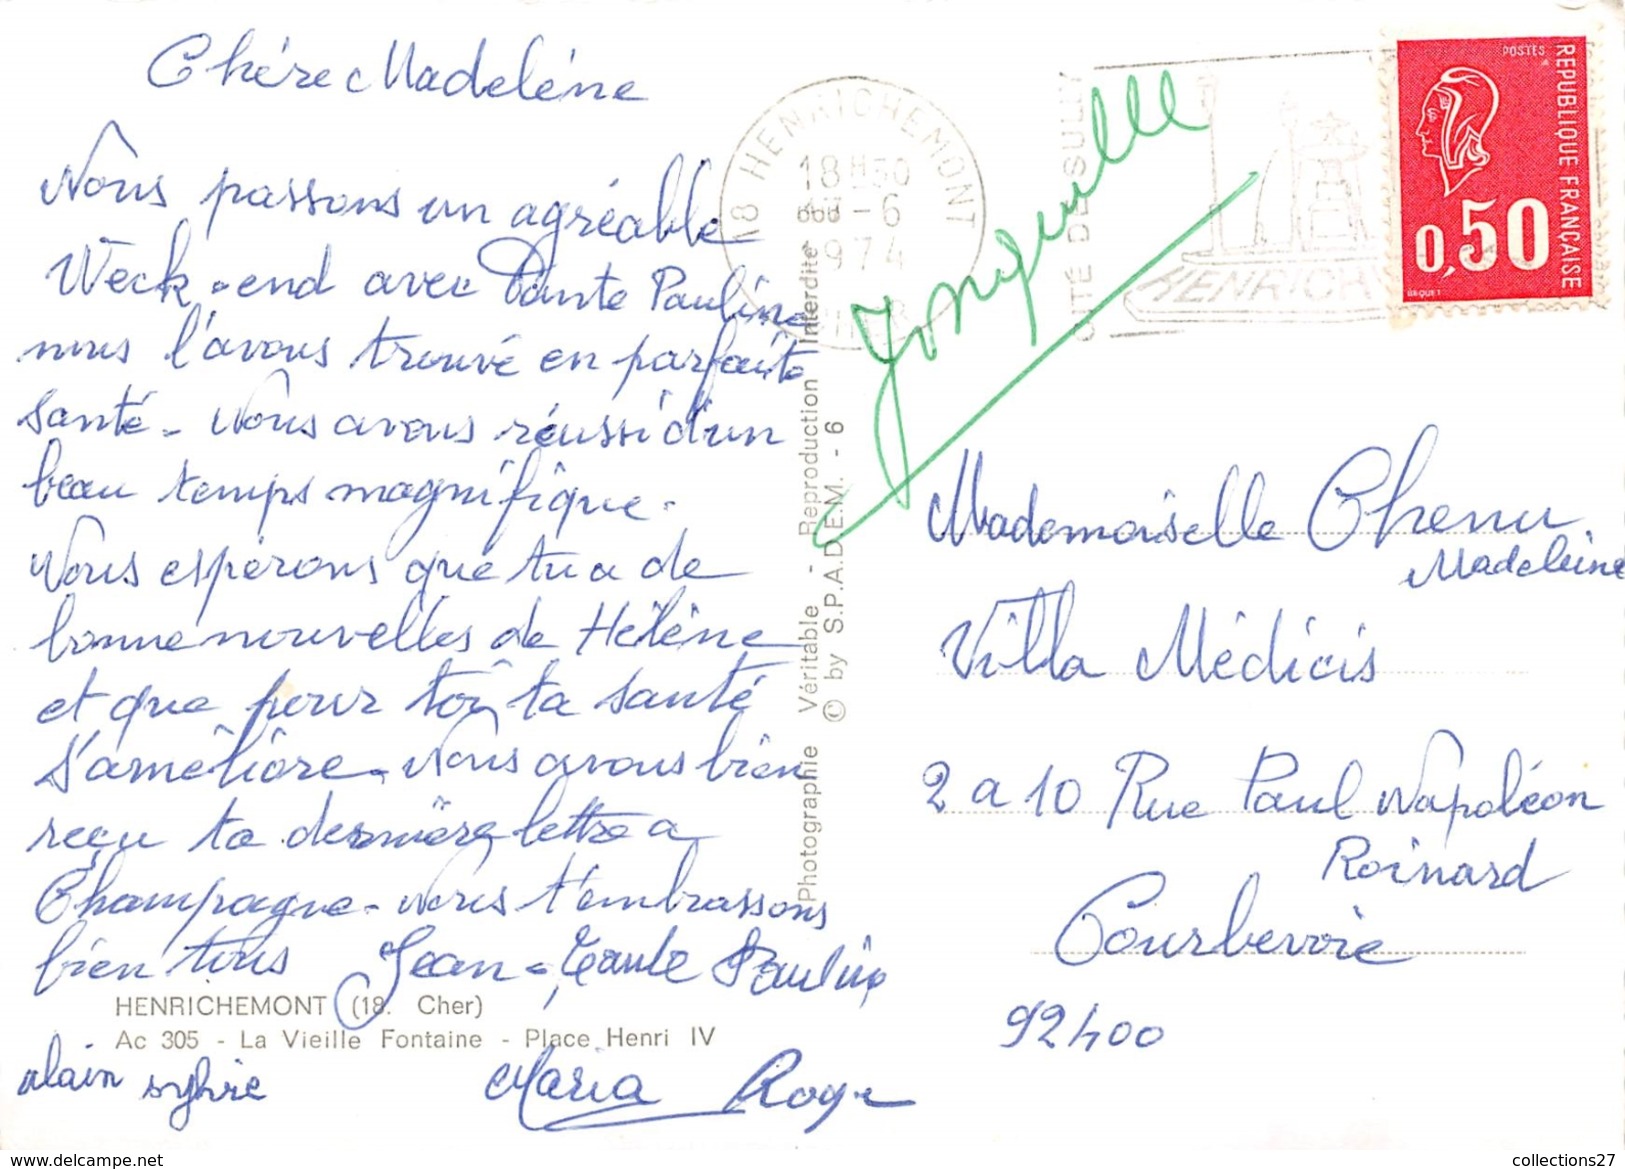 Chére Madeléne
Nous passons un agréable
Weck-end avec Tante Pauline
nous l'avons trouvé en parfaite
santé - Nous avons réussi d'un
beau temps magnifique.
Nous espérons que tu a de
bonne nouvelles de Hélène
et que pour toi ta santé
s'améliore. Nous avons bien
reçu ta dernière lettre a
Champagne - Nous t'embrassons
bien tous Jean - Tante Pauline
HENRICHEMONT (18. Cher)
Ac 305 - La Vieille Fontaine - Place Henri IV
alain sylvie Maria Roger
Photographie Véritable - Reproduction Interdite
© by S.P.A.D.E.M. - 6
18 HENRICHEMONT
18H30
-6
1974
CHER
CITÉ DE SULLY
HENRICH
Jonquille
POSTES
REPUBLIQUE FRANÇAISE
0,50
BEQUET
Mademoiselle Chenu
Madeleine
Villa Médicis
2 a 10 Rue Paul Napoléon
Roinard
Courbevoie
92400
collections27